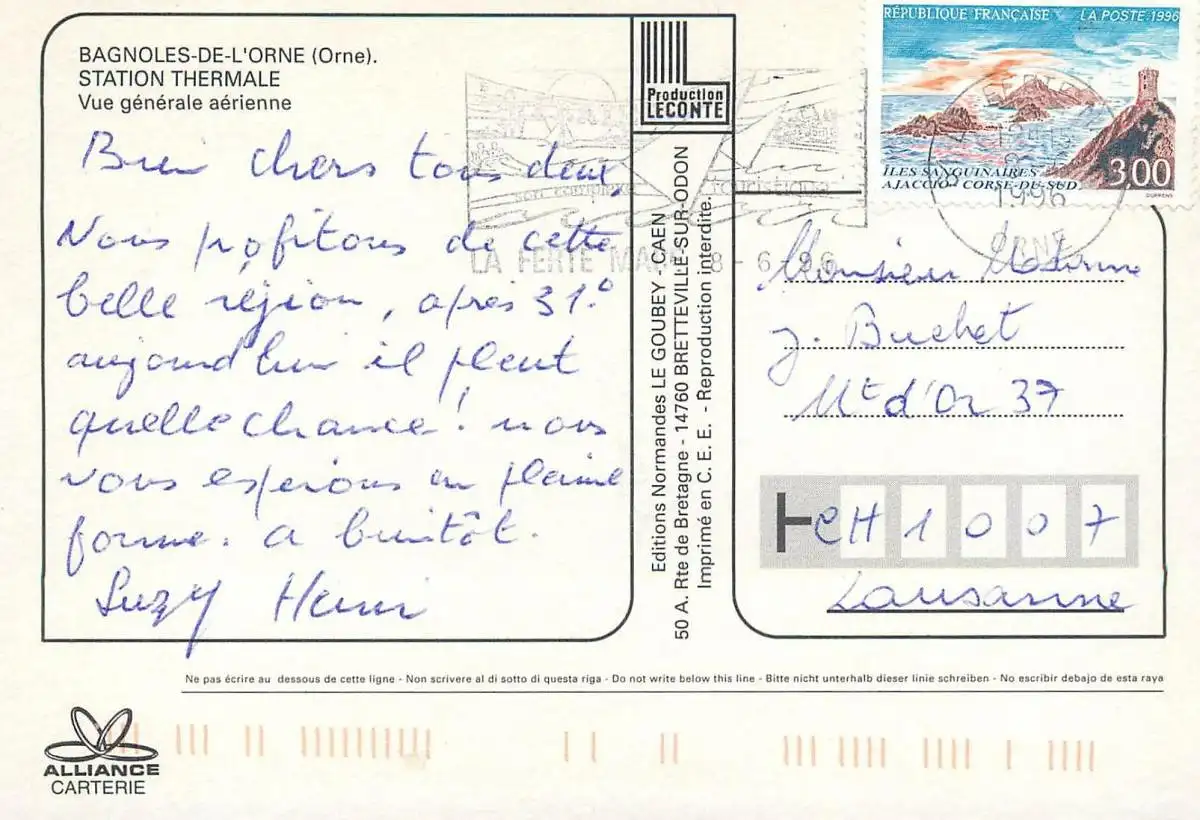 BAGNOLES-DE-L'ORNE (Orne).
STATION THERMALE
Vue générale aérienne
Bien chers tous deux,
Nous profitons de cette
belle région, après 31°
aujourd'hui il pleut
quelle chance! nous
vous espérons en pleine
forme. a bientôt.
Suzy Henri
Production
LECONTE
Editions Normandes LE GOUBEY - CAEN
50 A. Rte de Bretagne - 14760 BRETTEVILLE-SUR-ODON
Imprimé en C. E. E. - Reproduction interdite.
RÉPUBLIQUE FRANÇAISE LA POSTE 1996
ÎLES SANGUINAIRES
AJACCIO - CORSE-DU-SUD
3,00
DURRENS
son complexe touristique
LA FERTE MACE
8-6-96
1996
ORNE
Monsieur Madame
J. Buchet
Mt d'Or 37
CH 1007
Lausanne
Ne pas écrire au dessous de cette ligne - Non scrivere al di sotto di questa riga - Do not write below this line - Bitte nicht unterhalb dieser linie schreiben - No escribir debajo de esta raya
ALLIANCE
CARTERIE